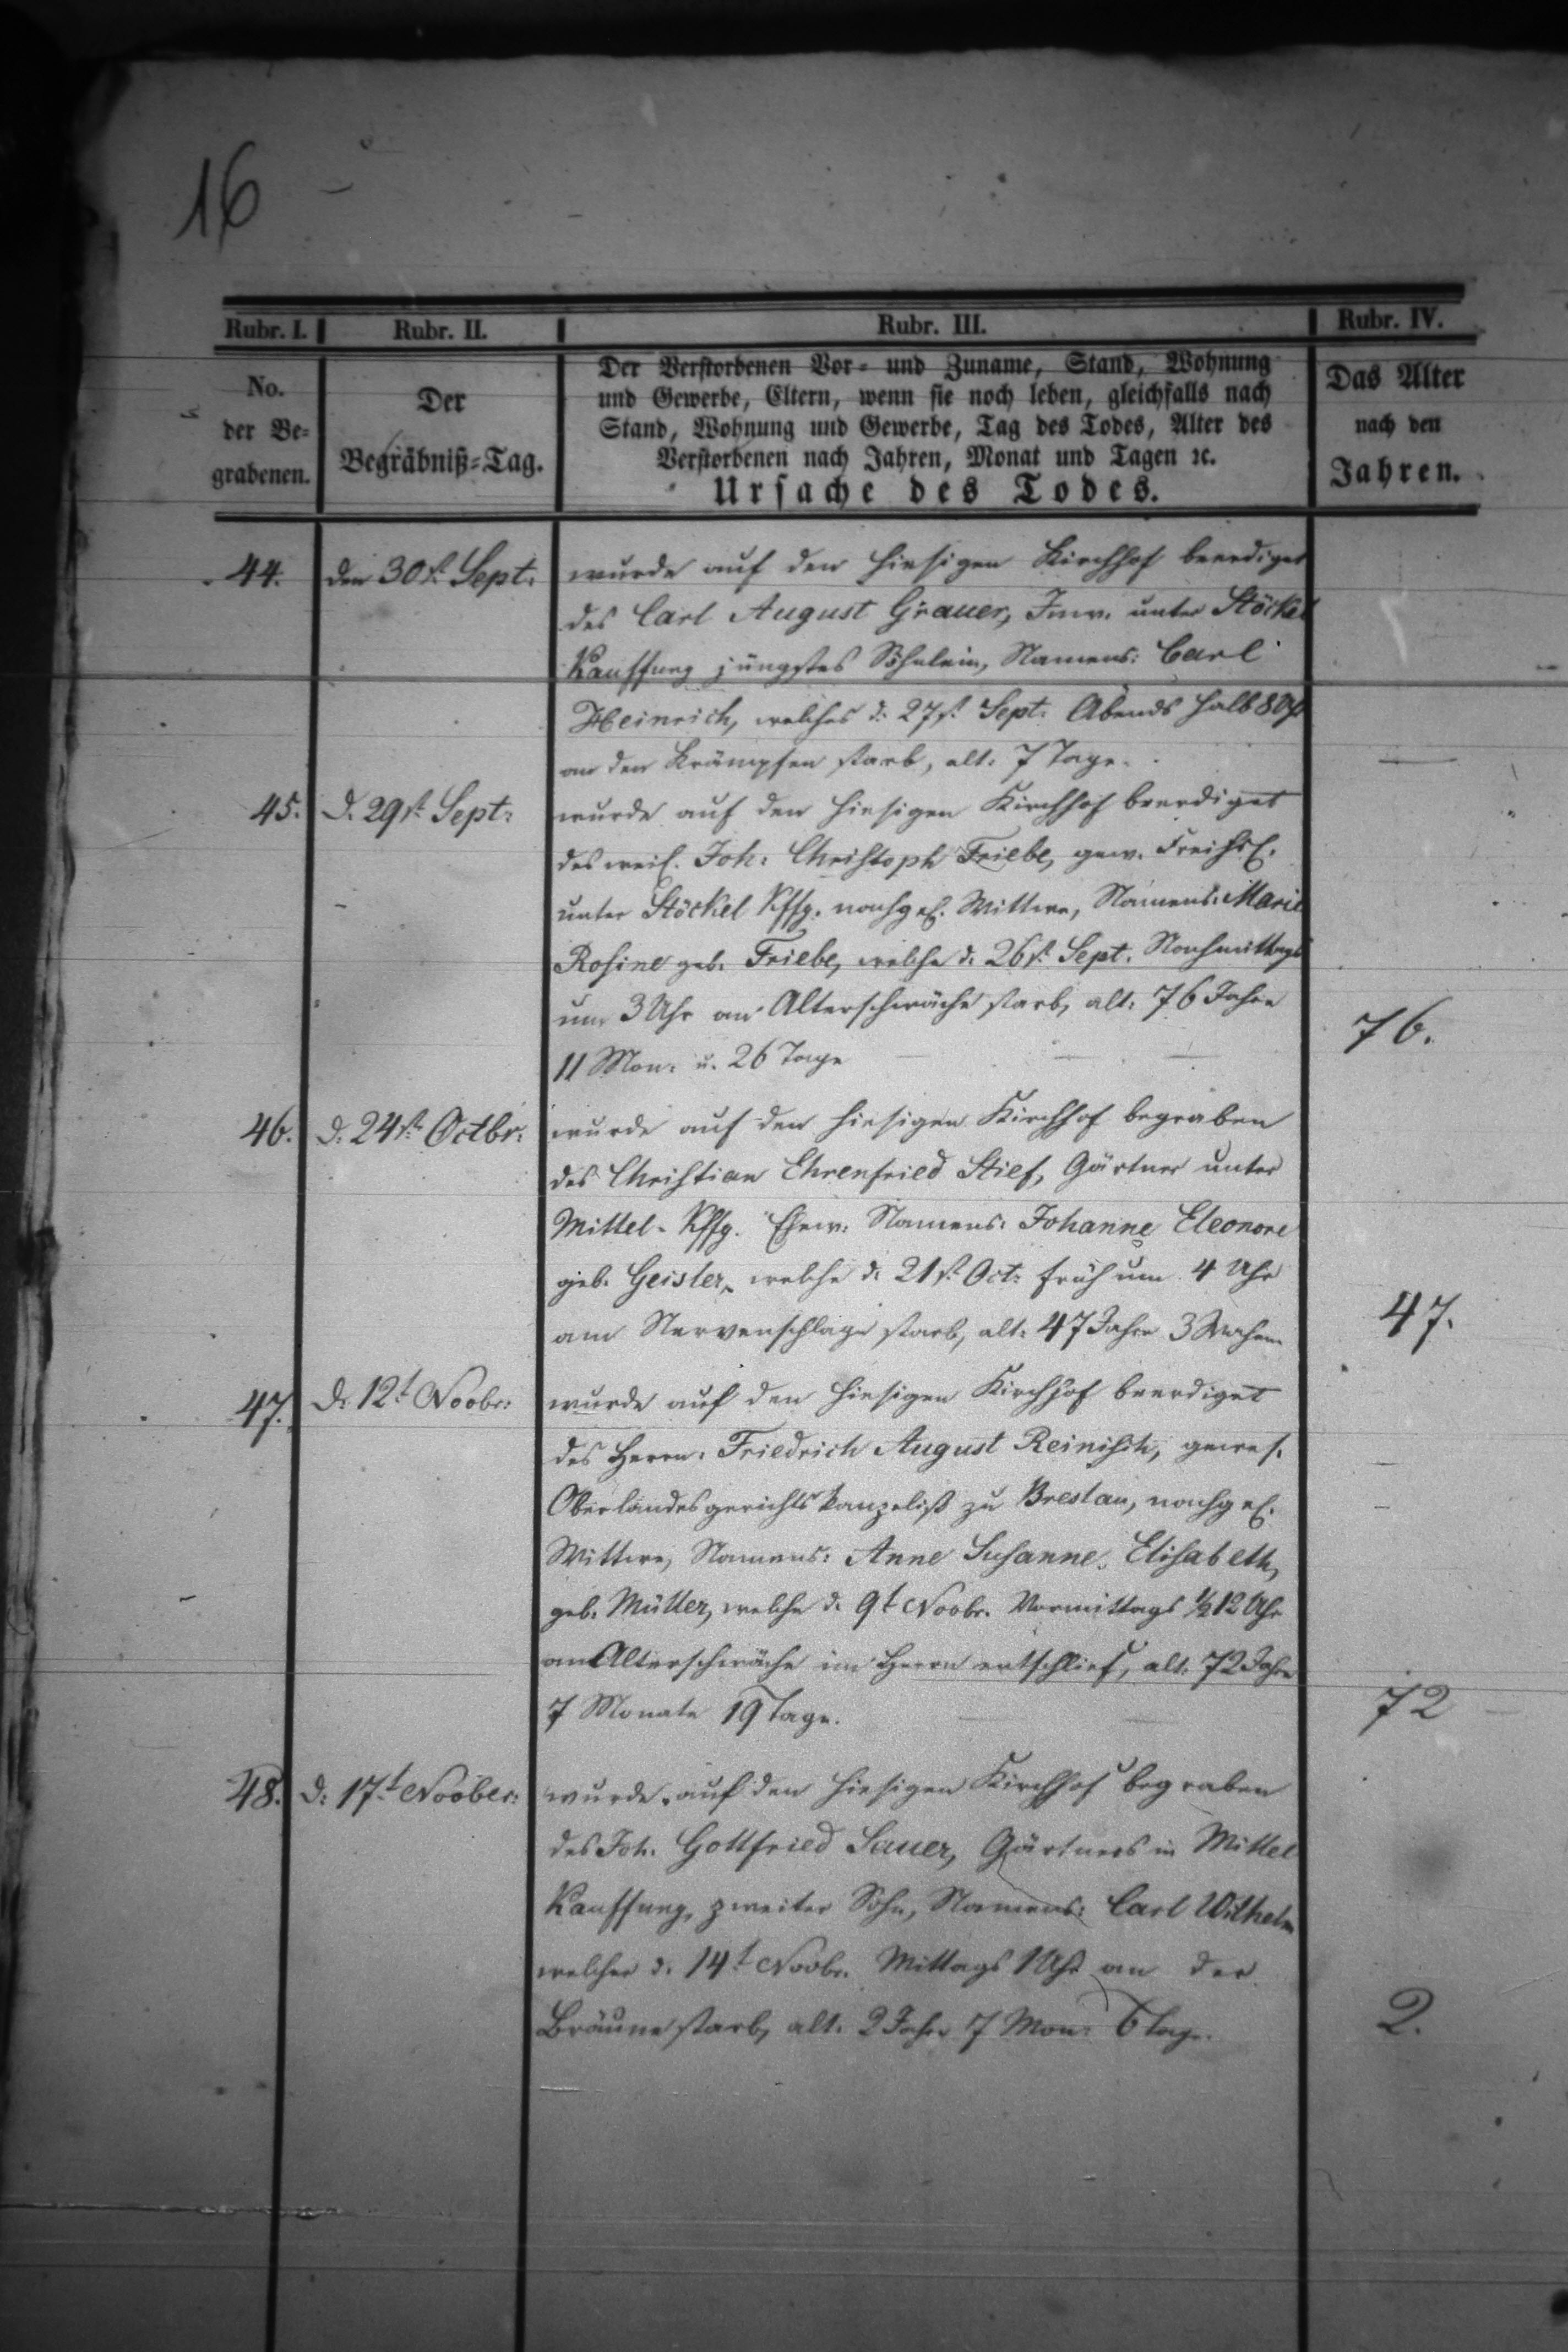 16
Rubr. I. Rubr. II. Rubr. III. Rubr. IV.
No. der Be= grabenen.
Der Begräbniß=Tag.
Der Verstorbenen Vor= und Zuname, Stand, Wohnung
und Gewerbe, Eltern, wenn sie noch leben, gleichfalls nach
Stand, Wohnung und Gewerbe, Tag des Todes, Alter des
Verstorbenen nach Jahren, Monat und Tagen ꝛc.
Ursache des Todes.
Das Alter
nach den
Jahren.
44. den 30st. Sept. wurde auf den hiesigen Kirchhof beerdiget
des Carl August Grauer, Inw. unter Stöckel
Kauffung jüngstes Söhnlein, Namens: Carl
Heinrich, welches d. 27st. Sept. Abends halb 8 Uhr
an den Krämpfen starb, alt: 7 Tage.
45. d. 29st. Sept: wurde auf den hiesigen Kirchhof beerdiget
des weil. Joh: Christoph Friebe, gew. Freihsl.
unter Stöckel Kffg. nachgel. Wittwe, Namens: Marie
Rosine geb. Friebe, welche d. 26st. Sept. Nachmittags
um 3 Uhr an Alterschwäche starb, alt: 76 Jahre
11 Mon: u. 26 Tage 76.
46. d. 24st. Octbr: wurde auf den hiesigen Kirchhof begraben
des Christian Ehrenfried Stief, Gärtner unter
Mittel-Kffg. Ehew: Namens: Johanne Eleonore
geb. Geisler, welche d. 21st. Oct: früh um 4 Uhr
am Nervenschlage starb, alt: 47 Jahre 3 Wochen 47.
47. d. 12t Novbr: wurde auf den hiesigen Kirchhof beerdiget
des Herrn: Friedrich August Reinisch, gewes.
Oberlandesgerichts Kanzelist zu Breslau, nachgel.
Wittwe, Namens: Anne Susanne Elisabeth,
geb. Müller, welche d. 9t Novbr. Vormittags ½ 12 Uhr
an Alterschwäche im Herrn entschlief, alt: 72 Jahre
7 Monate 19 Tage. 72
48. d: 17t Novber: wurde auf den hiesigen Kirchhof begraben
des Joh. Gottfried Sauer, Gärtners in Mittel
Kauffung, zweiter Sohn, Namens: Carl Wilhelm
welcher d. 14t Novbr. Mittags 1 Uhr an der
Bräune starb, alt. 2 Jahre 7 Mon: 6 Tage. 2.